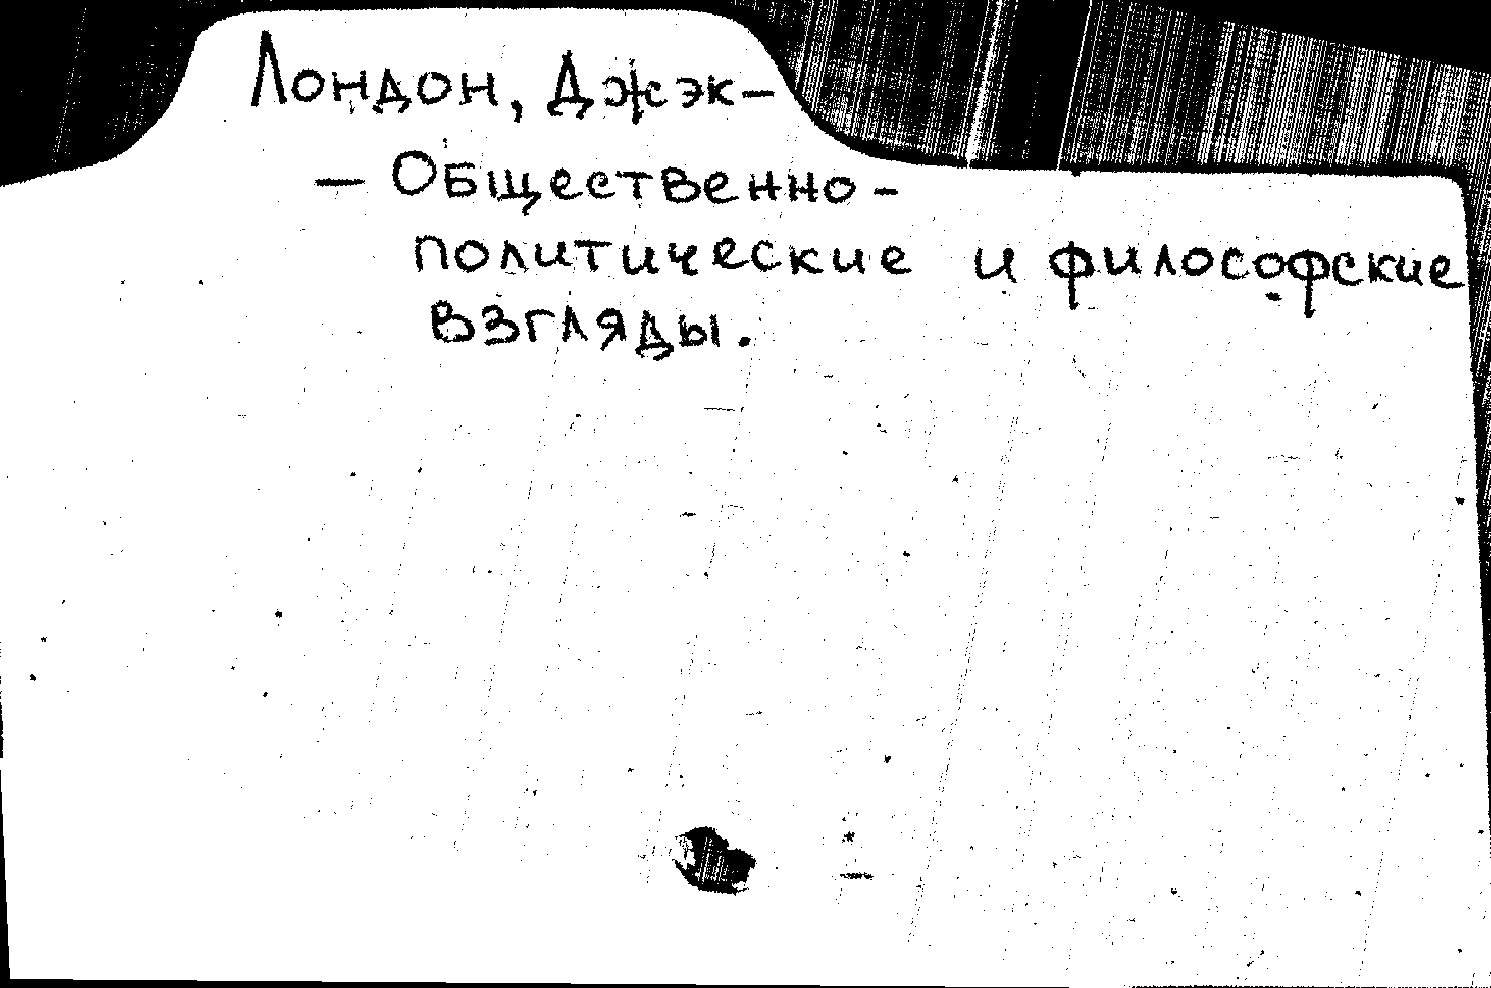 Лондон, Джэк-
- Общественно-
политические и философские
взгляды.